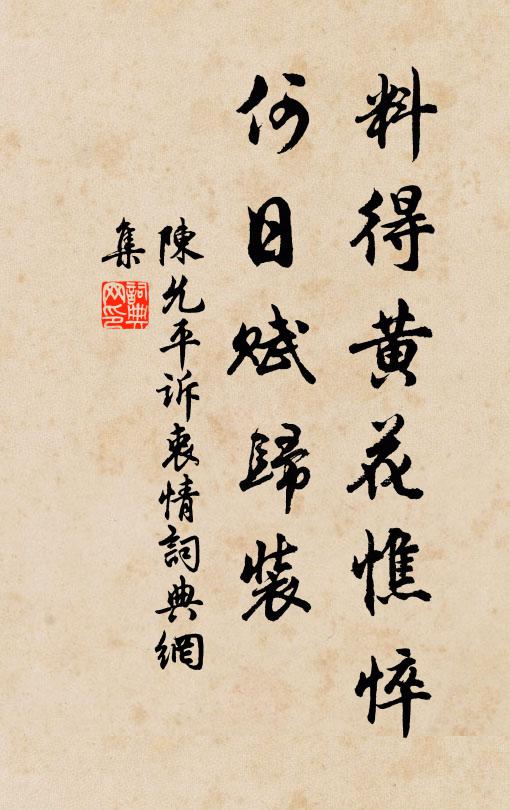 料得黄花憔悴
何日赋歸裝
陳允平诉衷情詞典網
集
詞典网印